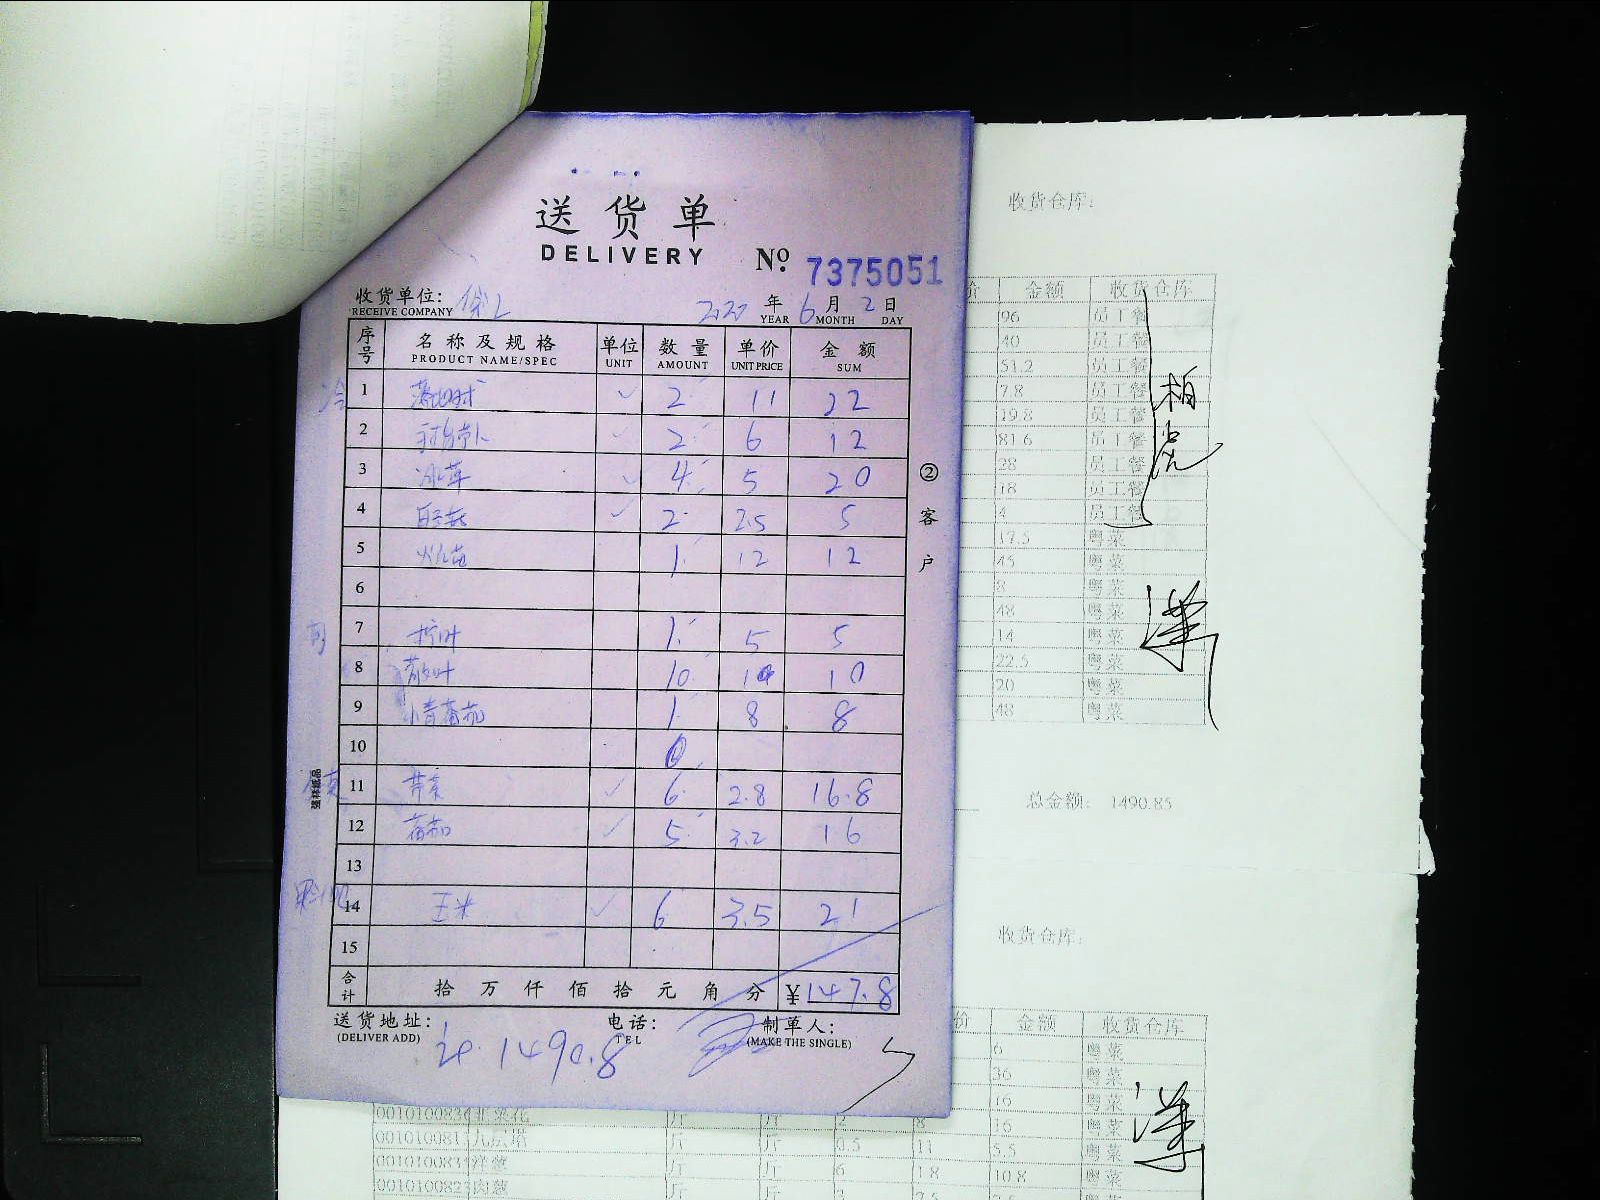 送货单
DELIVERY
No. 7375051
收货单位:
RECEIVE COMPANY
2020 年 6 月 2 日
YEAR MONTH DAY
序号 名称及规格 单位 数量 单价 金额
PRODUCT NAME/SPEC UNIT AMOUNT UNIT PRICE SUM
1 2 11 22
2 2 6 12
3 冰草 4 5 20
4 2 2.5 5
5 1 12 12
6
7 柠叶 1 5 5
8 10 10 10
9 小青番茄 1 8 8
10
11 芹菜 6 2.8 16.8
12 番茄 5 3.2 16
13
14 玉米 6 3.5 21
15
合计 拾 万 仟 佰 拾 元 角 分 ¥147.8
送货地址: 电话: 制单人:
(DELIVER ADD) TEL (MAKE THE SINGLE)
1490.8
②客户
强林纸品
收货仓库:
价 金额 收货仓库
96 员工餐
40 员工餐
51.2 员工餐
7.8 员工餐
19.8 员工餐
81.6 员工餐
28 员工餐
18 员工餐
4 员工餐
17.5 粤菜
45 粤菜
8 粤菜
48 粤菜
14 粤菜
22.5 粤菜
20 粤菜
48 粤菜
总金额: 1490.85
收货仓库:
价 金额 收货仓库
6 粤菜
36 粤菜
16 粤菜
斤 斤 2 8 16 粤菜
九层塔 斤 斤 0.5 11 5.5 粤菜
洋葱 斤 斤 6 1.8 10.8 粤菜
肉葱 斤 斤